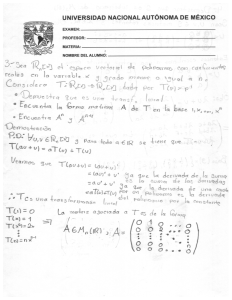 UNIVERSIDAD NACIONAL AUTÓNOMA DE MÉXICO
EXAMEN:
PROFESOR:
MATERIA:
NOMBRE DEL ALUMNO:
3- Sea Rn[x] el espacio vectorial de polinomios con coeficientes
reales en la variable x y grado menor o igual a n.
Considera T: Rn[x]→Rn[x] dada por T(v)=v'
• Demuestra que es una transf. lineal
• Encuentra la forma matricial A de T en la base 1, x, ..., xⁿ
• Encuentra Aⁿ y Aⁿ⁺¹
Demostración
P.D: ∀u,v∈Rn[x] y para todo a∈R se tiene que
T(au+v) = aT(u)+T(v)
Veamos que T(au+v) = (au+v)'
= (au)'+v' ya que la derivada de la suma
es la suma de las derivadas
= au'+v' ya que la derivada de una
= aT(u)+T(v) por un polinomio es la derivada
del polinomio por la constante
∴ T es una transformación lineal
T(1)=0 La matriz asociada a T es de la forma
T(x)=1
T(x²)=2x ⇒ A∈Mn(R) , A=
T(xⁿ)=nxⁿ⁻¹